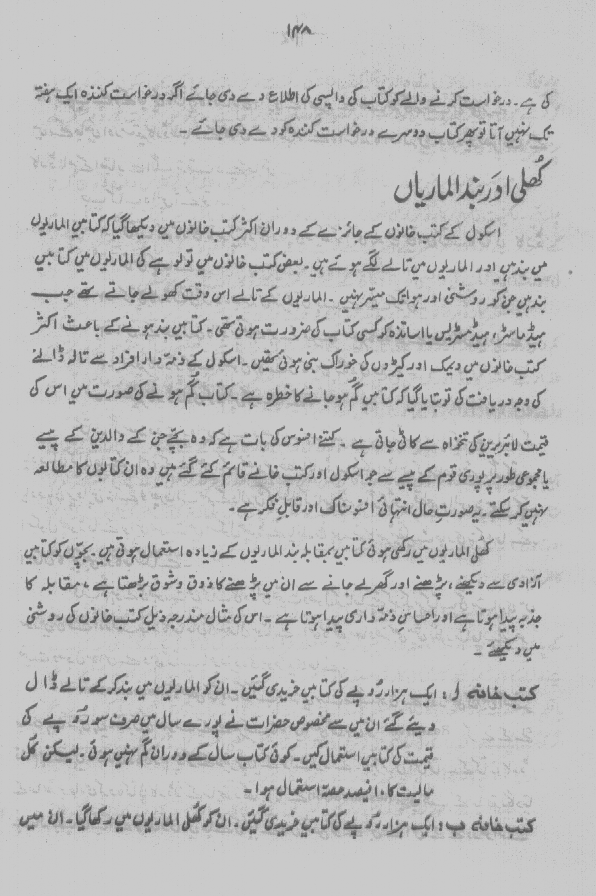 ۱۴۸
کی ہے۔ درخواست کرنے والے کو کتاب کی واپسی کی اطلاع دے دی جائے اگر درخواست کنندہ ایک ہفتہ
تک نہیں آتا تو پھر کتاب دوسرے درخواست کنندہ کو دے دی جائے۔
کُھلی اور بند الماریاں
اسکول کے کتب خانوں کے جائزے کے دوران اکثر کتب خانوں میں دیکھا گیا کہ کتابیں الماریوں
میں بند ہیں اور الماریوں میں تالے لگے ہوئے ہیں۔ بعض کتب خانوں میں تو لوہے کی الماریوں میں کتابیں
بند ہیں جن کو روشنی اور ہوا تک میسّر نہیں۔ الماریوں کے تالے اس وقت کھولے جاتے تھے جب
ہیڈ ماسٹر، ہیڈ مسٹریس یا اساتذہ کو کسی کتاب کی ضرورت ہوتی تھی۔ کتابیں بند ہونے کے باعث اکثر
کتب خانوں میں دیمک اور کیڑوں کی خوراک بنی ہوئی تھیں۔ اسکول کے ذمہ دار افراد سے تالہ ڈالنے
کی وجہ دریافت کی تو بتایا گیا کہ کتابیں گم ہو جانے کا خطرہ ہے۔ کتاب گم ہونے کی صورت میں اس کی
قیمت لائبریرین کی تنخواہ سے کاٹی جاتی ہے۔ کتنے افسوس کی بات ہے کہ وہ بچّے جن کے والدین کے پیسے
یا مجموعی طور پر پوری قوم کے پیسے سے جو اسکول اور کتب خانے قائم کئے گئے ہیں وہ ان کتابوں کا مطالعہ
نہیں کر سکتے۔ یہ صورت حال انتہائی افسوسناک اور قابل فکر ہے۔
کُھلی الماریوں میں رکھی ہوئی کتابیں بمقابلہ بند الماریوں کے زیادہ استعمال ہوتی ہیں۔ بچّوں کو کتابیں
آزادی سے دیکھنے، پڑھنے اور گھر لے جانے سے ان میں پڑھنے کا ذوق و شوق بڑھتا ہے، مقابلہ کا
جذبہ پیدا ہوتا ہے اور احساسِ ذمّہ داری پیدا ہوتا ہے۔ اس کی مثال مندرجہ ذیل کتب خانوں کی روشنی
میں دیکھئے۔
کتب خانہ ا: ایک ہزار رُوپے کی کتابیں خریدی گئیں۔ ان کو الماریوں میں بند کر کے تالے ڈال
دیئے گئے ان میں سے مخصوص حضرات نے پورے سال میں صرف سو رُوپے کی
قیمت کی کتابیں استعمال کیں۔ کوئی کتاب سال کے دوران گم نہیں ہوئی۔ لیکن کُل
مالیت کا ۱۰ فیصد حصہ استعمال ہوا۔
کتب خانہ ب: ایک ہزار رُوپے کی کتابیں خریدی گئیں۔ ان کو کُھلی الماریوں میں رکھا گیا۔ ان میں